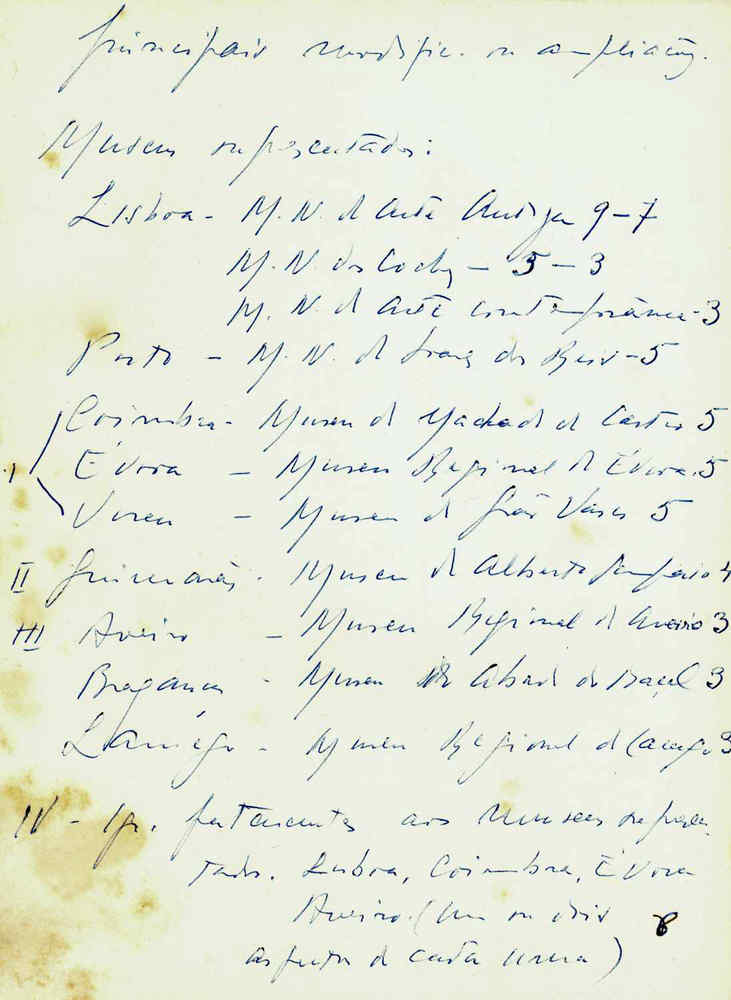 principais modific. ou ampliação.
Museus representados:
Lisboa - M. N. d Arte Antiga 9-7
M. N. dos Coches - 5 - 3
M. N. d Arte contemporânea - 3
Porto - M. N. d Soares dos Reis - 5
Coimbra - Museu d Machado d Castro 5
I Évora - Museu Regional d Évora. 5
Viseu - Museu d Grão Vasco 5
II Guimarães - Museu d Alberto Sampaio 4
III Aveiro - Museu Regional d Aveiro 3
Bragança - Museu do Abade do Baçal 3
Lamego - Museu Regional d Lamego 3
IV - Igr. pertencentes aos Museus represen
tados. Lisboa, Coimbra, Évora
Aveiro. (um ou dois 8
aspectos d cada uma)